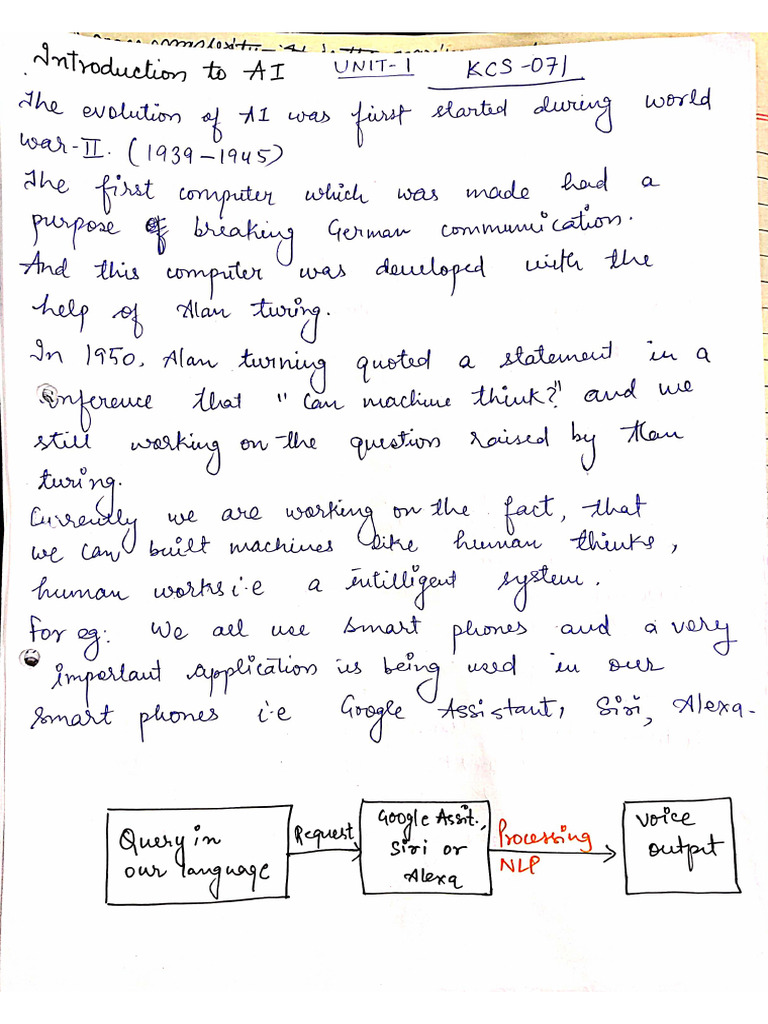 Introduction to AI UNIT-1 KCS-071
The evolution of AI was first started during world
war-II. (1939-1945)
The first computer which was made had a
purpose of breaking German communication.
And this computer was developed with the
help of Alan turing.
In 1950, Alan turning quoted a statement in a
conference that "can machine think?" and we
still working on the question raised by Alan
turing.
Currently we are working on the fact, that
we can built machines like human thinks,
human works i.e a intilligent system.
For eg: We all use smart phones and a very
important application is being used in our
smart phones i.e Google Assistant, Siri, Alexa.
Query in
our language
Request
Google Assit.,
Siri or
Alexa
Processing
NLP
Voice
output